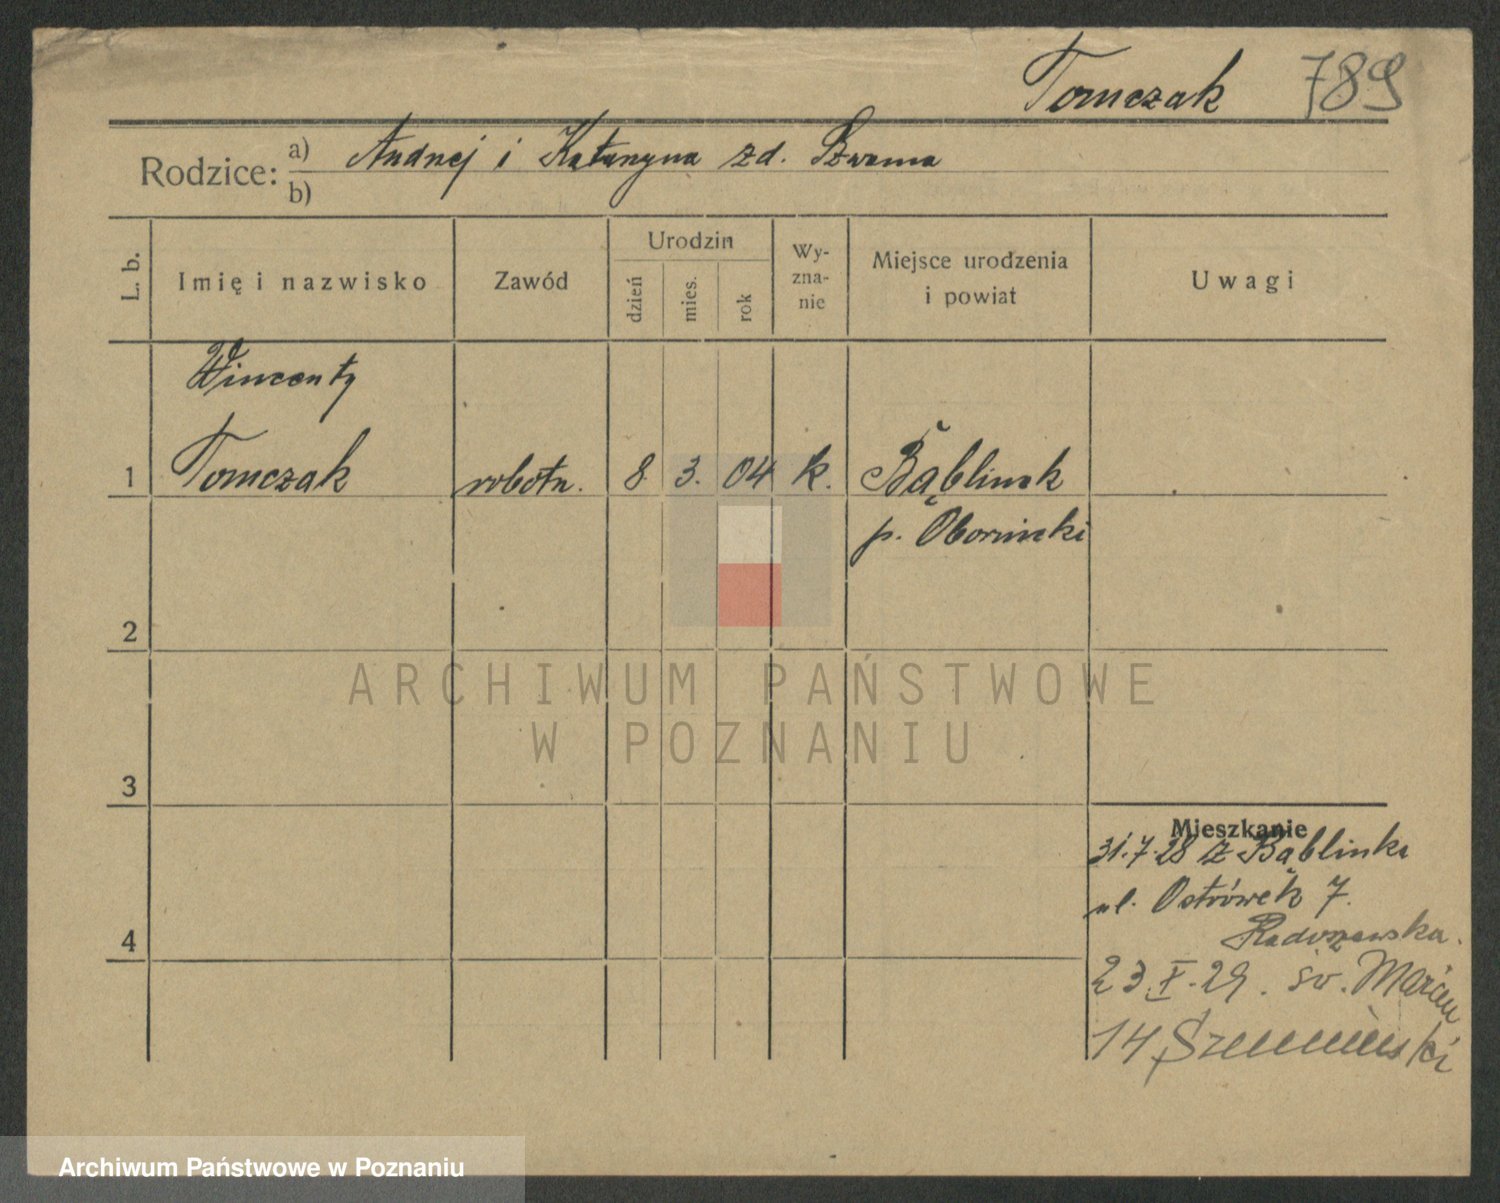 Tomczak 789
Rodzice: a) Andrzej i Katarzyna zd. Szrama
b)
L. b. Imię i nazwisko Zawód Urodzin dzień mies. rok Wy-zna-nie Miejsce urodzenia i powiat Uwagi
Wincenty
1 Tomczak robotn. 8. 3. 04 k. Bąblinek
p. Obornicki
2
ARCHIWUM PAŃSTWOWE
W POZNANIU
3
Mieszkanie
31.7.28 z Bąblinka
ul. Ostrówek 7.
4
Radoszewska.
23.X.29. św. Marcin
14
Archiwum Państwowe w Poznaniu